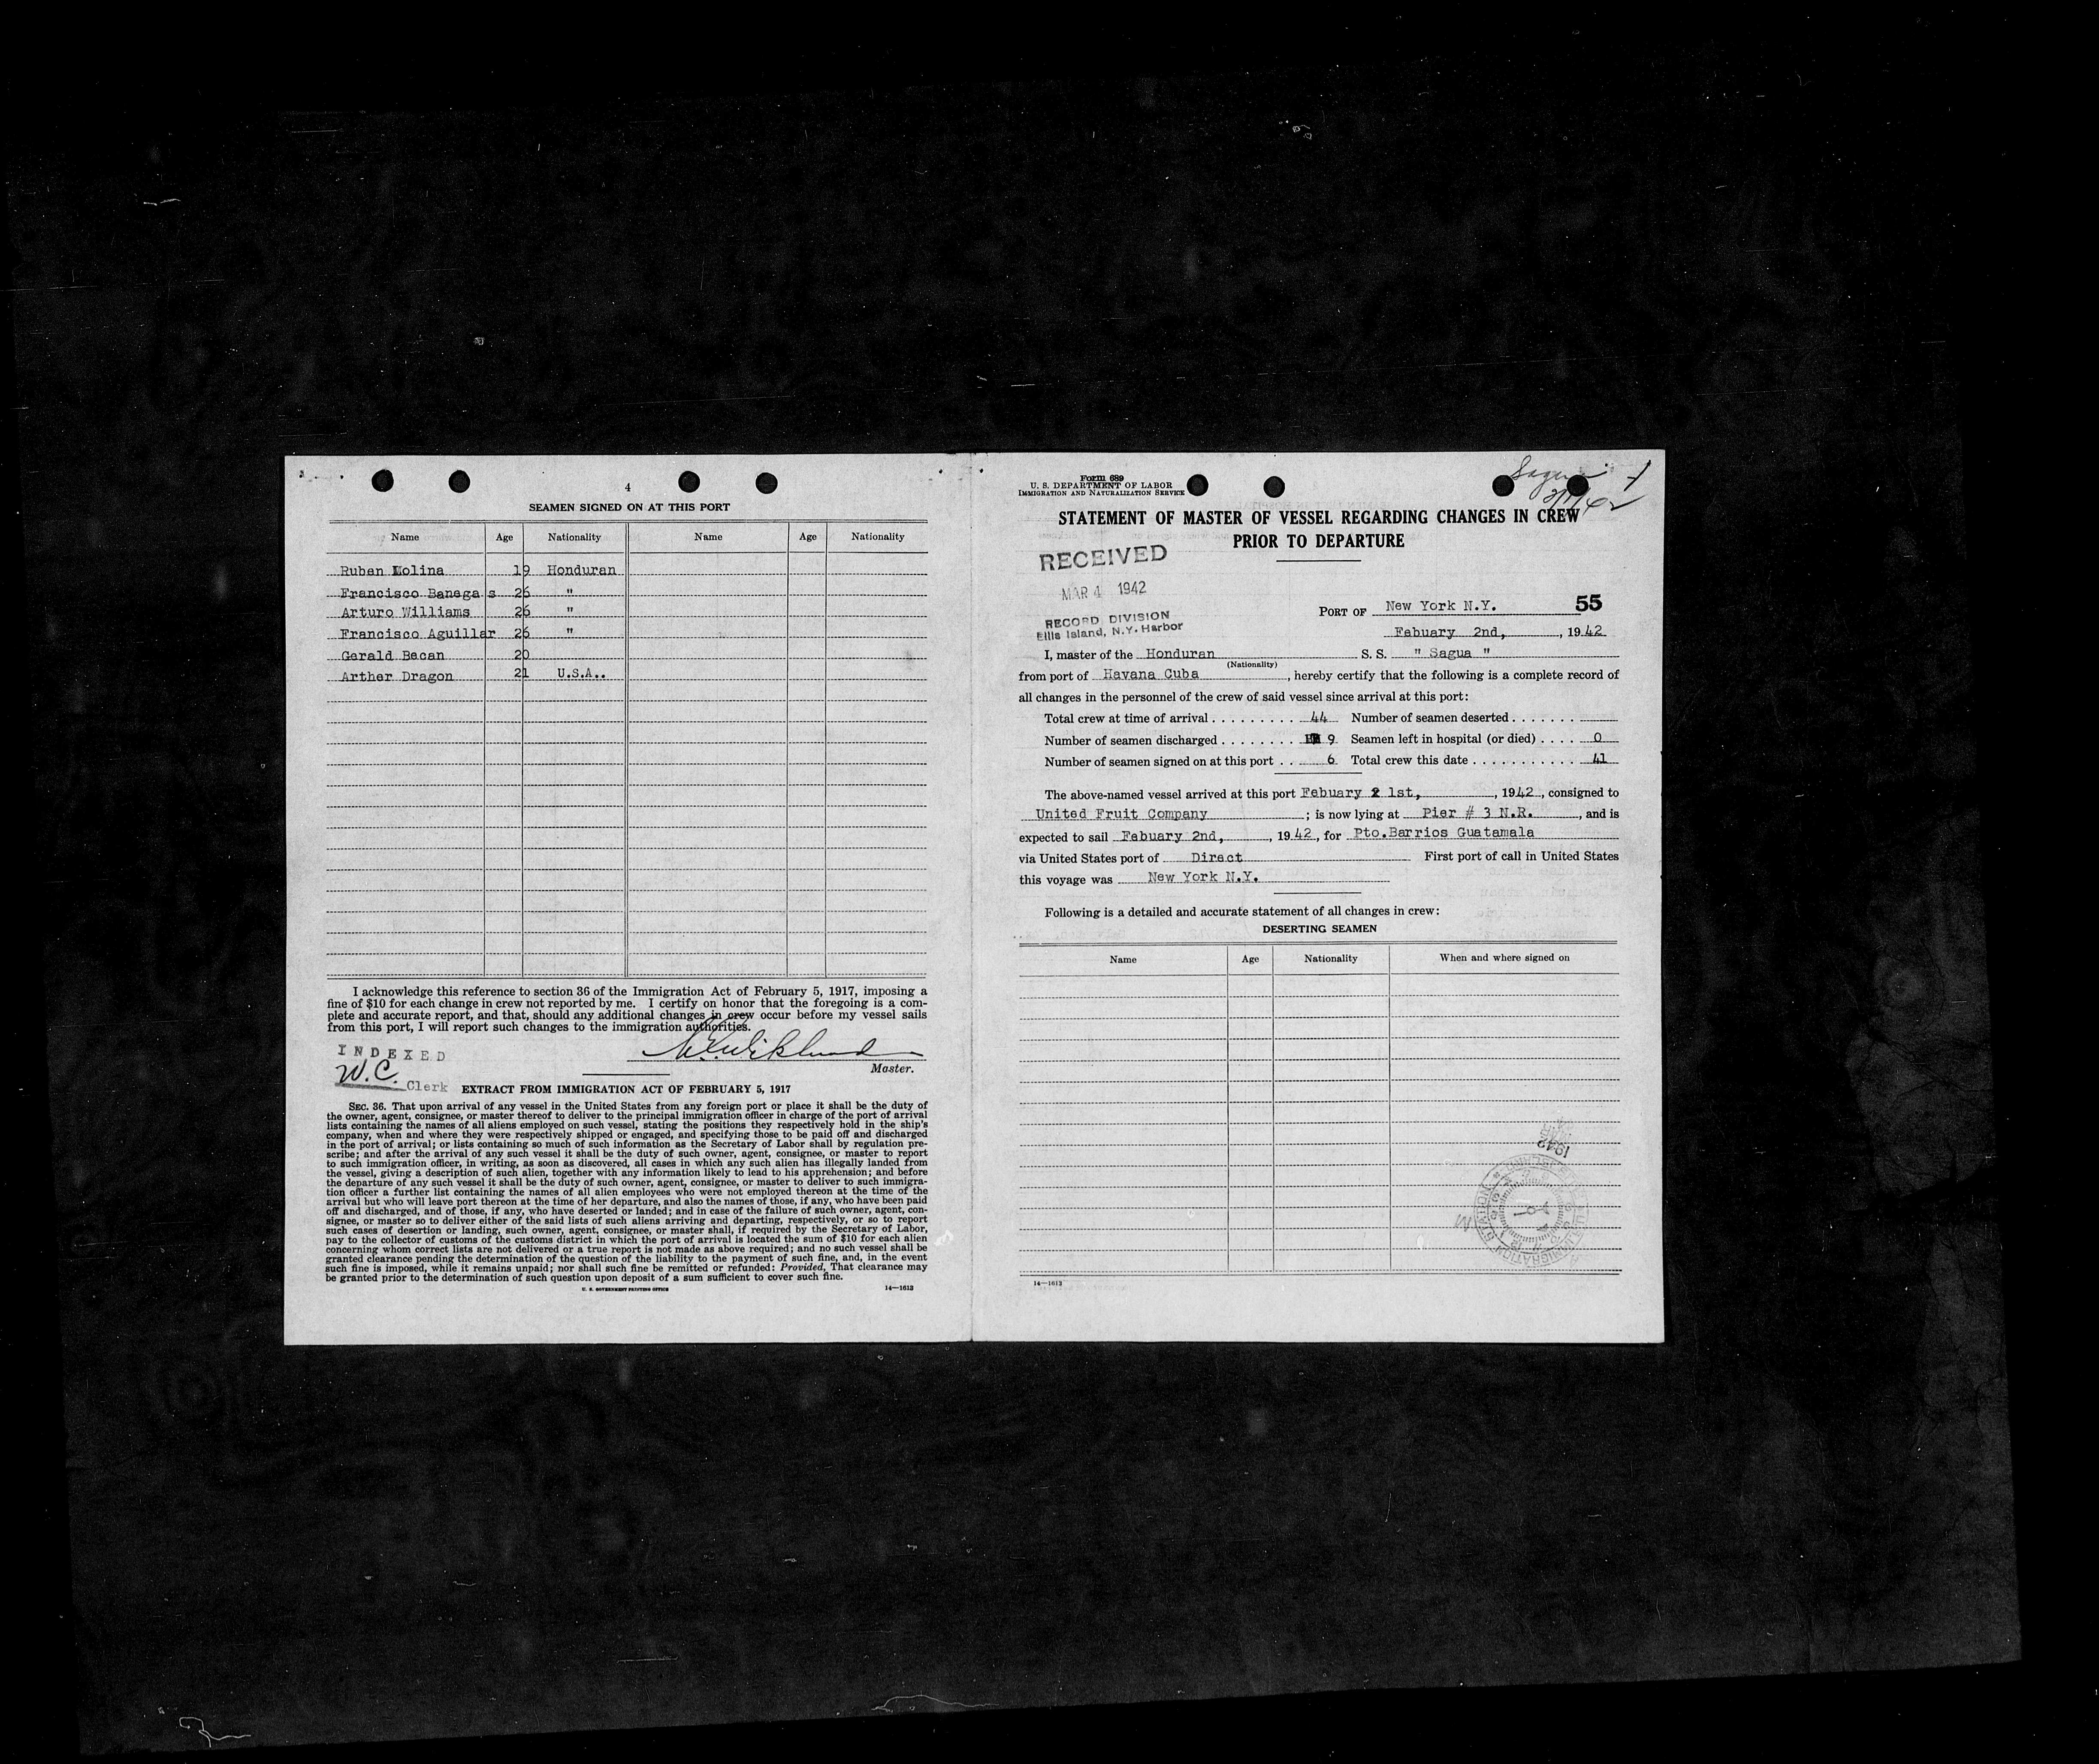 4
SEAMEN SIGNED ON AT THIS PORT
Name Age Nationality Name Age Nationality
Ruben Molina 19 Honduran
Francisco Banega s 26 "
Arturo Williams 26 "
Francisco Aguillar 26 "
Gerald Becan 20
Arther Dragon 21 U.S.A..
I acknowledge this reference to section 36 of the Immigration Act of February 5, 1917, imposing a
fine of $10 for each change in crew not reported by me. I certify on honor that the foregoing is a com-
plete and accurate report, and that, should any additional changes in crew occur before my vessel sails
from this port, I will report such changes to the immigration authorities.
INDEXED
W.C. Clerk
Master.
EXTRACT FROM IMMIGRATION ACT OF FEBRUARY 5, 1917
SEC. 36. That upon arrival of any vessel in the United States from any foreign port or place it shall be the duty of
the owner, agent, consignee, or master thereof to deliver to the principal immigration officer in charge of the port of arrival
lists containing the names of all aliens employed on such vessel, stating the positions they respectively hold in the ship's
company, when and where they were respectively shipped or engaged, and specifying those to be paid off and discharged
in the port of arrival; or lists containing so much of such information as the Secretary of Labor shall by regulation pre-
scribe; and after the arrival of any such vessel it shall be the duty of such owner, agent, consignee, or master to report
to such immigration officer, in writing, as soon as discovered, all cases in which any such alien has illegally landed from
the vessel, giving a description of such alien, together with any information likely to lead to his apprehension; and before
the departure of any such vessel it shall be the duty of such owner, agent, consignee, or master to deliver to such immigra-
tion officer a further list containing the names of all alien employees who were not employed thereon at the time of the
arrival but who will leave port thereon at the time of her departure, and also the names of those, if any, who have been paid
off and discharged, and of those, if any, who have deserted or landed; and in case of the failure of such owner, agent, con-
signee, or master so to deliver either of the said lists of such aliens arriving and departing, respectively, or so to report
such cases of desertion or landing, such owner, agent, consignee, or master shall, if required by the Secretary of Labor,
pay to the collector of customs of the customs district in which the port of arrival is located the sum of $10 for each alien
concerning whom correct lists are not delivered or a true report is not made as above required; and no such vessel shall be
granted clearance pending the determination of the question of the liability to the payment of such fine, and, in the event
such fine is imposed, while it remains unpaid; nor shall such fine be remitted or refunded: Provided, That clearance may
be granted prior to the determination of such question upon deposit of a sum sufficient to cover such fine.
U. S. GOVERNMENT PRINTING OFFICE 14—1613
Form 689
U. S. DEPARTMENT OF LABOR
IMMIGRATION AND NATURALIZATION SERVICE
Sagua
STATEMENT OF MASTER OF VESSEL REGARDING CHANGES IN CREW
PRIOR TO DEPARTURE
RECEIVED
MAR 4 1942
RECORD DIVISION
Ellis Island, N.Y. Harbor
PORT OF New York N.Y. 55
Febuary 2nd, , 1942
I, master of the Honduran S. S. " Sagua "
(Nationality)
from port of Havana Cuba , hereby certify that the following is a complete record of
all changes in the personnel of the crew of said vessel since arrival at this port:
Total crew at time of arrival . . . . . . . . . 44 Number of seamen deserted . . . . . . .
Number of seamen discharged . . . . . . . . 9 Seamen left in hospital (or died) . . . . 0
Number of seamen signed on at this port . . 6 Total crew this date . . . . . . . . . . . 41
The above-named vessel arrived at this port Febuary 1st, , 1942, consigned to
United Fruit Company ; is now lying at Pier # 3 N.R. , and is
expected to sail Febuary 2nd, , 1942, for Pto.Barrios Guatamala
via United States port of Direct First port of call in United States
this voyage was New York N.Y.
Following is a detailed and accurate statement of all changes in crew:
DESERTING SEAMEN
Name Age Nationality When and where signed on
1942
14—1613